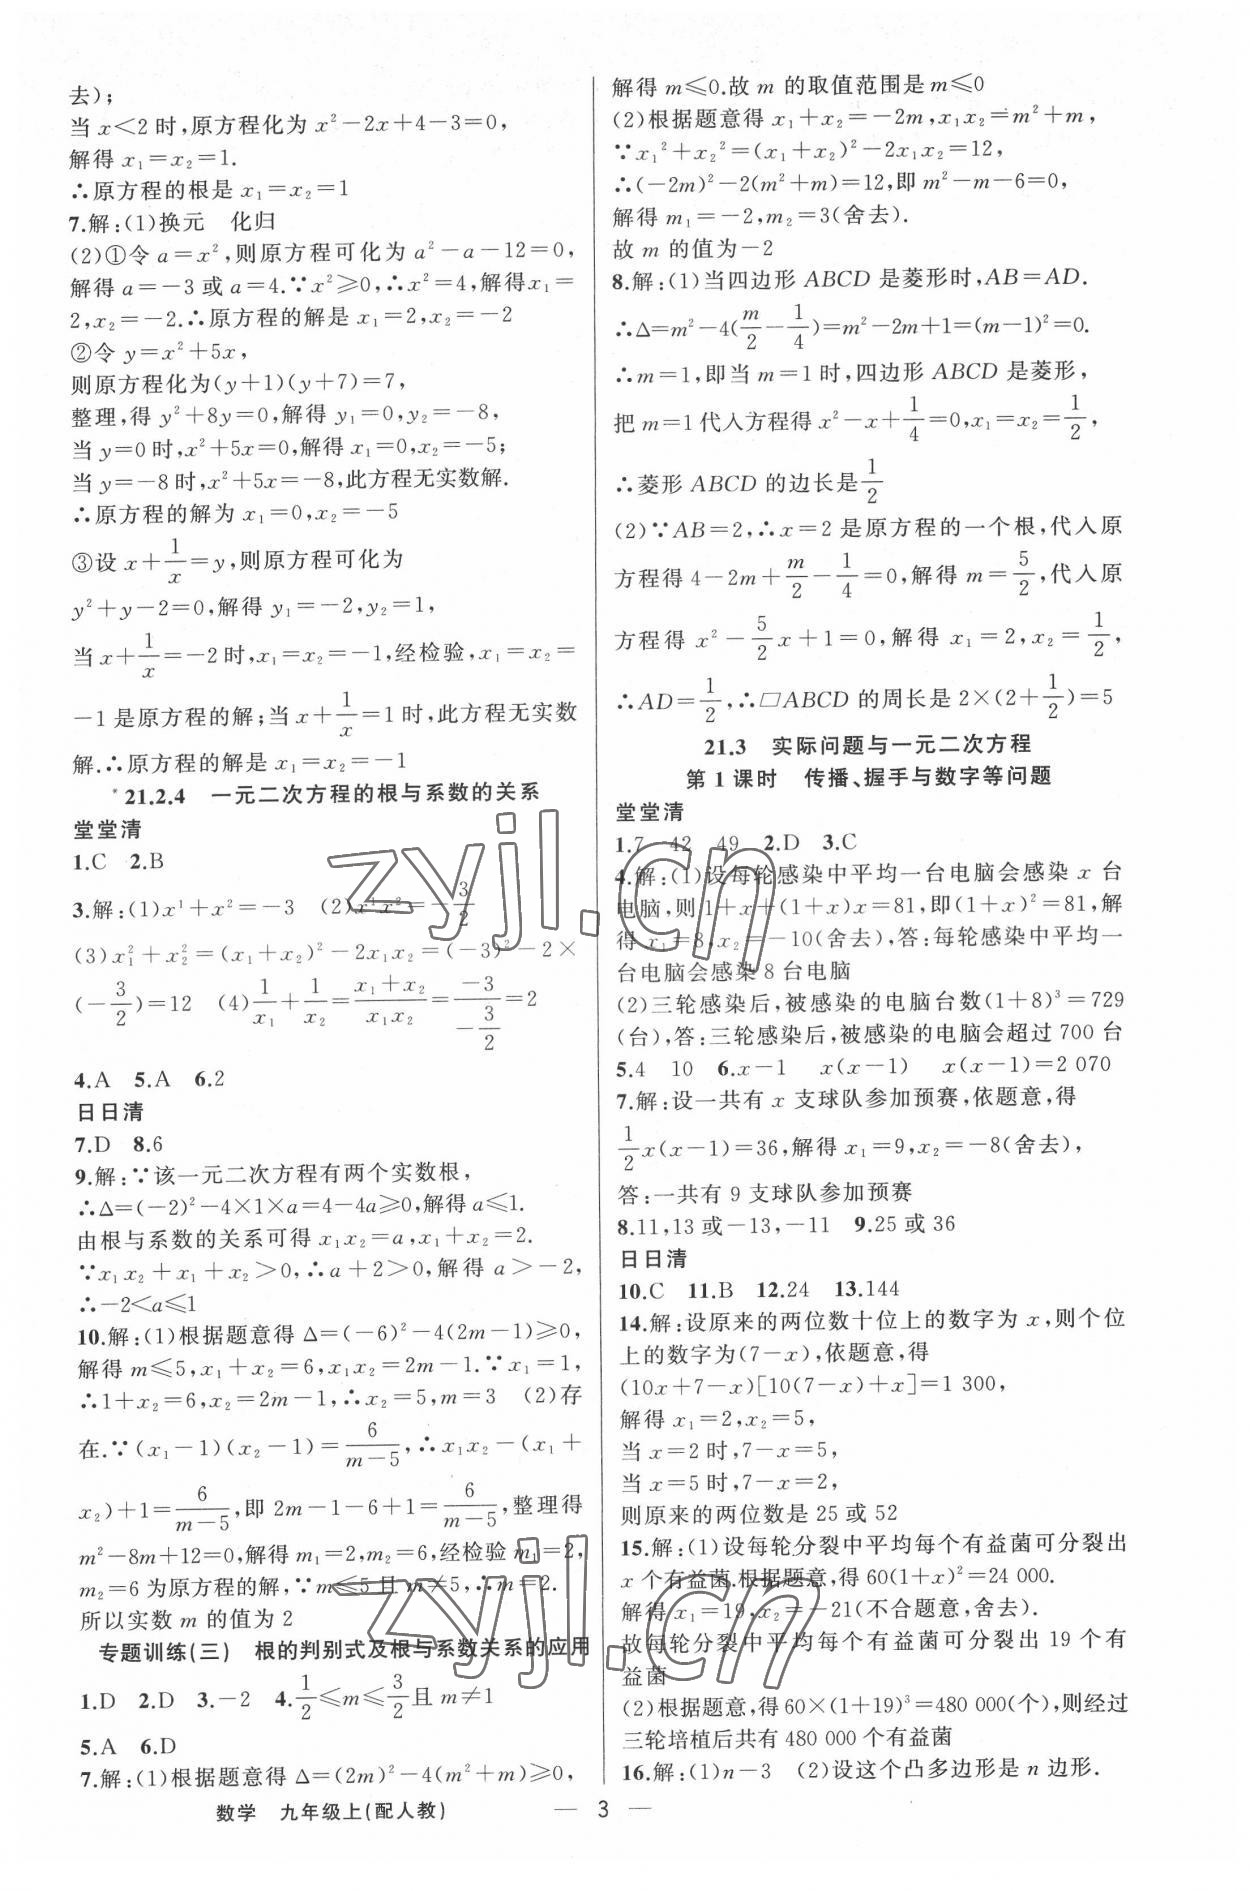 去);
当 x<2 时,原方程化为 x²-2x+4-3=0,
解得 x₁=x₂=1.
∴原方程的根是 x₁=x₂=1
7.解:(1)换元　化归
(2)①令 a=x²,则原方程可化为 a²-a-12=0,
解得 a=-3 或 a=4.∵x²≥0,∴x²=4,解得x₁=
2,x₂=-2.∴原方程的解是 x₁=2,x₂=-2
②令 y=x²+5x,
则原方程化为(y+1)(y+7)=7,
整理,得 y²+8y=0,解得 y₁=0,y₂=-8,
当 y=0时,x²+5x=0,解得 x₁=0,x₂=-5;
当 y=-8时,x²+5x=-8,此方程无实数解.
∴原方程的解为 x₁=0,x₂=-5
③设 x+1/x=y,则原方程可化为
y²+y-2=0,解得 y₁=-2,y₂=1,
当 x+1/x=-2时,x₁=x₂=-1,经检验,x₁=x₂=
-1是原方程的解;当 x+1/x=1时,此方程无实数
解.∴原方程的解是 x₁=x₂=-1
*21.2.4　一元二次方程的根与系数的关系
堂堂清
1.C　2.B
3.解:(1)x¹+x²=-3　(2)x¹x²=-3/2
(3)x₁²+x₂²=(x₁+x₂)²-2x₁x₂=(-3)²-2×
(-3/2)=12　(4)1/x₁+1/x₂=(x₁+x₂)/(x₁x₂)=-3/(-3/2)=2
4.A　5.A　6.2
日日清
7.D　8.6
9.解:∵该一元二次方程有两个实数根,
∴Δ=(-2)²-4×1×a=4-4a≥0,解得 a≤1.
由根与系数的关系可得 x₁x₂=a,x₁+x₂=2.
∵x₁x₂+x₁+x₂>0,∴a+2>0,解得 a>-2,
∴-2<a≤1
10.解:(1)根据题意得 Δ=(-6)²-4(2m-1)≥0,
解得 m≤5,x₁+x₂=6,x₁x₂=2m-1.∵x₁=1,
∴1+x₂=6,x₂=2m-1,∴x₂=5,m=3　(2)存
在.∵(x₁-1)(x₂-1)=6/(m-5),∴x₁x₂-(x₁+
x₂)+1=6/(m-5),即 2m-1-6+1=6/(m-5),整理得
m²-8m+12=0,解得 m₁=2,m₂=6,经检验 m₁=2,
m₂=6 为原方程的解,∵m≤5 且 m≠5,∴m=2.
所以实数 m 的值为 2
专题训练(三)　根的判别式及根与系数关系的应用
1.D　2.D　3.-2　4.1/2≤m≤3/2且 m≠1
5.A　6.D
7.解:(1)根据题意得 Δ=(2m)²-4(m²+m)≥0,
解得 m≤0.故 m 的取值范围是 m≤0
(2)根据题意得 x₁+x₂=-2m,x₁x₂=m²+m,
∵x₁²+x₂²=(x₁+x₂)²-2x₁x₂=12,
∴(-2m)²-2(m²+m)=12,即 m²-m-6=0,
解得 m₁=-2,m₂=3(舍去).
故 m 的值为-2
8.解:(1)当四边形 ABCD 是菱形时,AB=AD.
∴Δ=m²-4(m/2-1/4)=m²-2m+1=(m-1)²=0.
∴m=1,即当 m=1 时,四边形 ABCD 是菱形,
把 m=1代入方程得 x²-x+1/4=0,x₁=x₂=1/2,
∴菱形 ABCD 的边长是1/2
(2)∵AB=2,∴x=2 是原方程的一个根,代入原
方程得 4-2m+m/2-1/4=0,解得 m=5/2,代入原
方程得 x²-5/2x+1=0,解得 x₁=2,x₂=1/2,
∴AD=1/2,∴□ABCD 的周长是 2×(2+1/2)=5
21.3　实际问题与一元二次方程
第 1 课时　传播、握手与数字等问题
堂堂清
1.7　42　49　2.D　3.C
4.解:(1)设每轮感染中平均一台电脑会感染 x 台
电脑,则 1+x+(1+x)x=81,即(1+x)²=81,解
得 x₁=8,x₂=-10(舍去),答:每轮感染中平均一
台电脑会感染 8 台电脑
(2)三轮感染后,被感染的电脑台数(1+8)³=729
(台),答:三轮感染后,被感染的电脑会超过 700 台
5.4　10　6.x-1　x(x-1)　x(x-1)=2 070
7.解:设一共有 x 支球队参加预赛,依题意,得
1/2x(x-1)=36,解得 x₁=9,x₂=-8(舍去),
答:一共有 9 支球队参加预赛
8.11,13 或-13,-11　9.25 或 36
日日清
10.C　11.B　12.24　13.144
14.解:设原来的两位数十位上的数字为 x,则个位
上的数字为(7-x),依题意,得
(10x+7-x)[10(7-x)+x]=1 300,
解得 x₁=2,x₂=5,
当 x=2 时,7-x=5,
当 x=5 时,7-x=2,
则原来的两位数是 25 或 52
15.解:(1)设每轮分裂中平均每个有益菌可分裂出
x 个有益菌.根据题意,得 60(1+x)²=24 000.
解得 x₁=19,x₂=-21(不合题意,舍去).
故每轮分裂中平均每个有益菌可分裂出 19 个有
益菌
(2)根据题意,得 60×(1+19)³=480 000(个),则经过
三轮培植后共有 480 000 个有益菌
16.解:(1)n-3　(2)设这个凸多边形是 n 边形.
数学　九年级上(配人教)　— 3 —
zyjl.cn
zyjl.cn